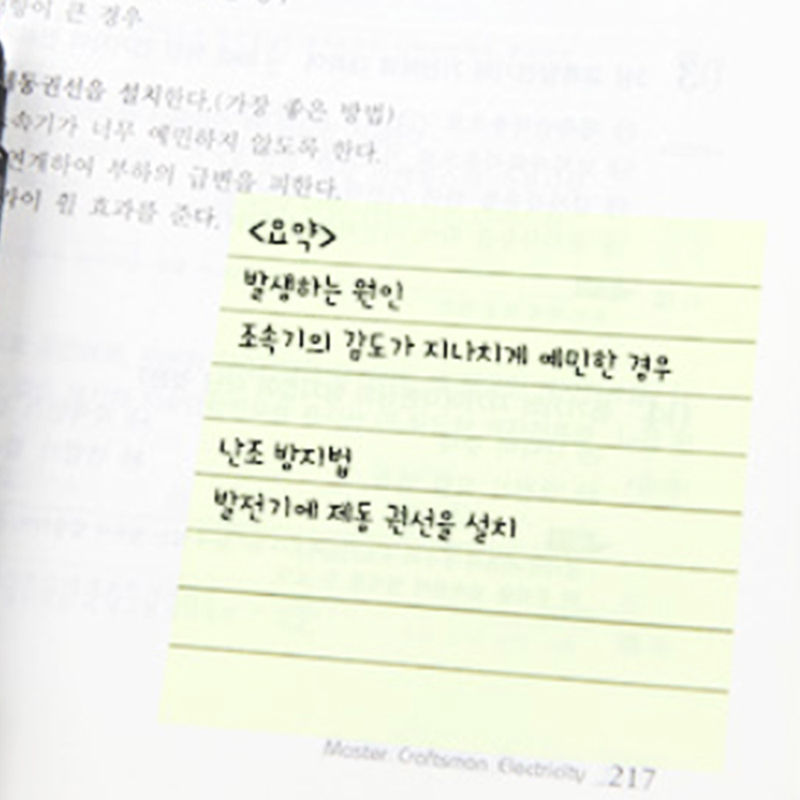 큰 경우
제동권선을 설치한다.(가장 좋은 방법)
속기가 너무 예민하지 않도록 한다.
연계하여 부하의 급변을 피한다.
휠 효과를 준다.
<요약>
발생하는 원인
조속기의 감도가 지나치게 예민한 경우
난조 방지법
발전기에 제동 권선을 설치
Master Craftsman Electricity 217